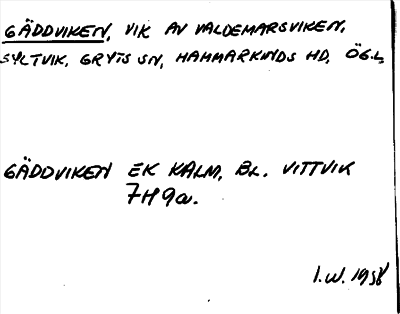 GÄDDVIKEN, VIK AV VALDEMARSVIKEN,
SYLTVIK, GRYTS SN, HAMMARKINDS HD, ÖG.L,
GÄDDVIKEN EK KALM, BL. VITTVIK
7H9a.
I.W. 1958